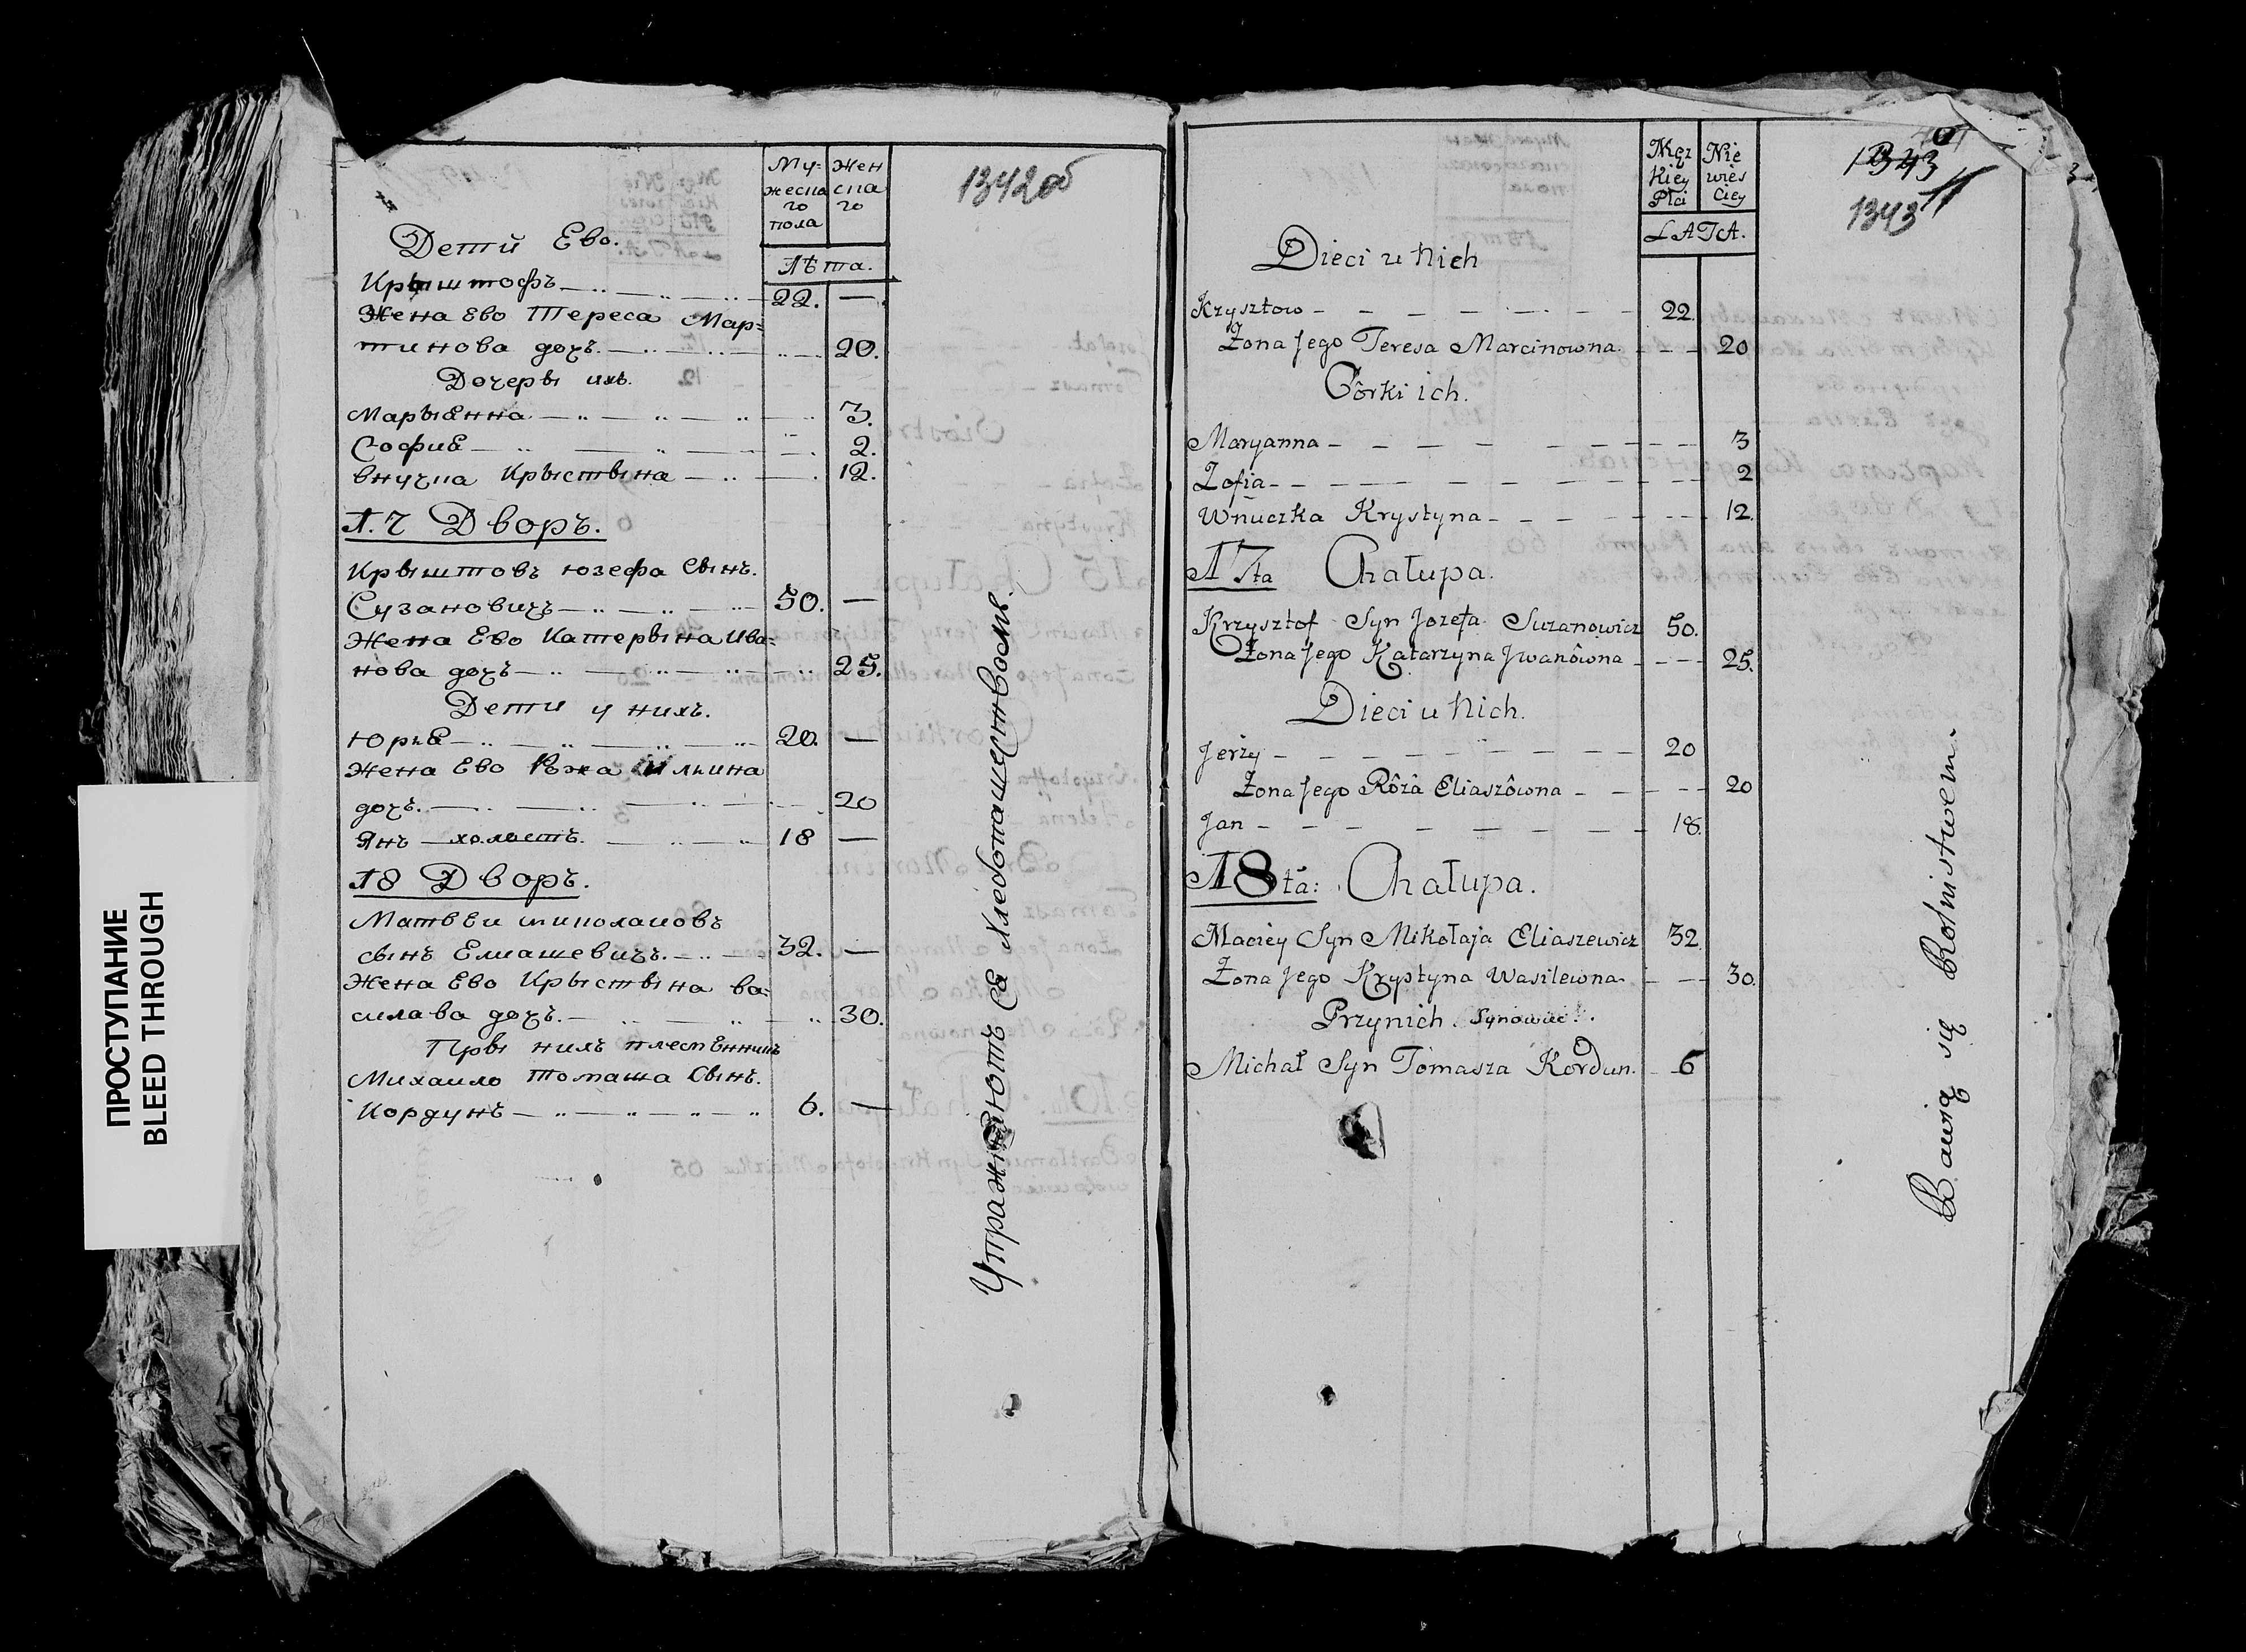 ПРОСТУПАНИЕ
BLEED THROUGH
Му=
жеска
го
пола
Жен
ска
го
Лѣта.
1342об
Дети Ево.
Крыштофъ 22. —
Жена Ево Тереса Мар=
тинова дочъ. 20.
Дочеры ихъ.
Марыанна 3.
София 2.
внучка Крыстына 12.
17 Дворъ.
Крыштовъ юзефа Сынъ.
Сузановичъ 50. —
Жена Ево Катерына Ива=
нова дочъ 25.
Дети у нихъ.
Юрья 20. —
Жена Ево Ружа Ильина
дочъ. 20
Янъ холостъ. 18 —
18 Дворъ.
Матвеи миколаиовъ
сынъ Елиашевичъ. 32. —
Жена Ево Крыстына ва=
силава дочъ. 30.
Пры нихъ племенникъ
Михаило Томаша Сынъ.
Кордунъ 6. —
Упражняютъ Ся Хлебопашествомъ.
Męz
kiey
Płci
Nie
wies
Ciey
LATA.
1343
1343
Dieci u Nich
Krysztow 22.
Żona Jego Teresa Marcinowna. 20
Côrki ich.
Maryanna 3
Zofia 2
Wnuczka Krystyna 12.
17ta Chałupa.
Krzysztof Syn Jozefa Suzanowicz 50.
Żona Jego Katarzyna Jwanôwna 25.
Dieci u Nich.
Jerzy 20
Żona Jego Rôża Eliaszôwna 20
Jan 18.
18ta: Chałupa.
Maciey Syn Mikołaja Eliaszewicz 32.
Żona Jego Krystyna Wasilewna. 30.
Przynich. Synowiec.
Michał Syn Tomasza Kordun. 6
Bawią się Rolnistwem.